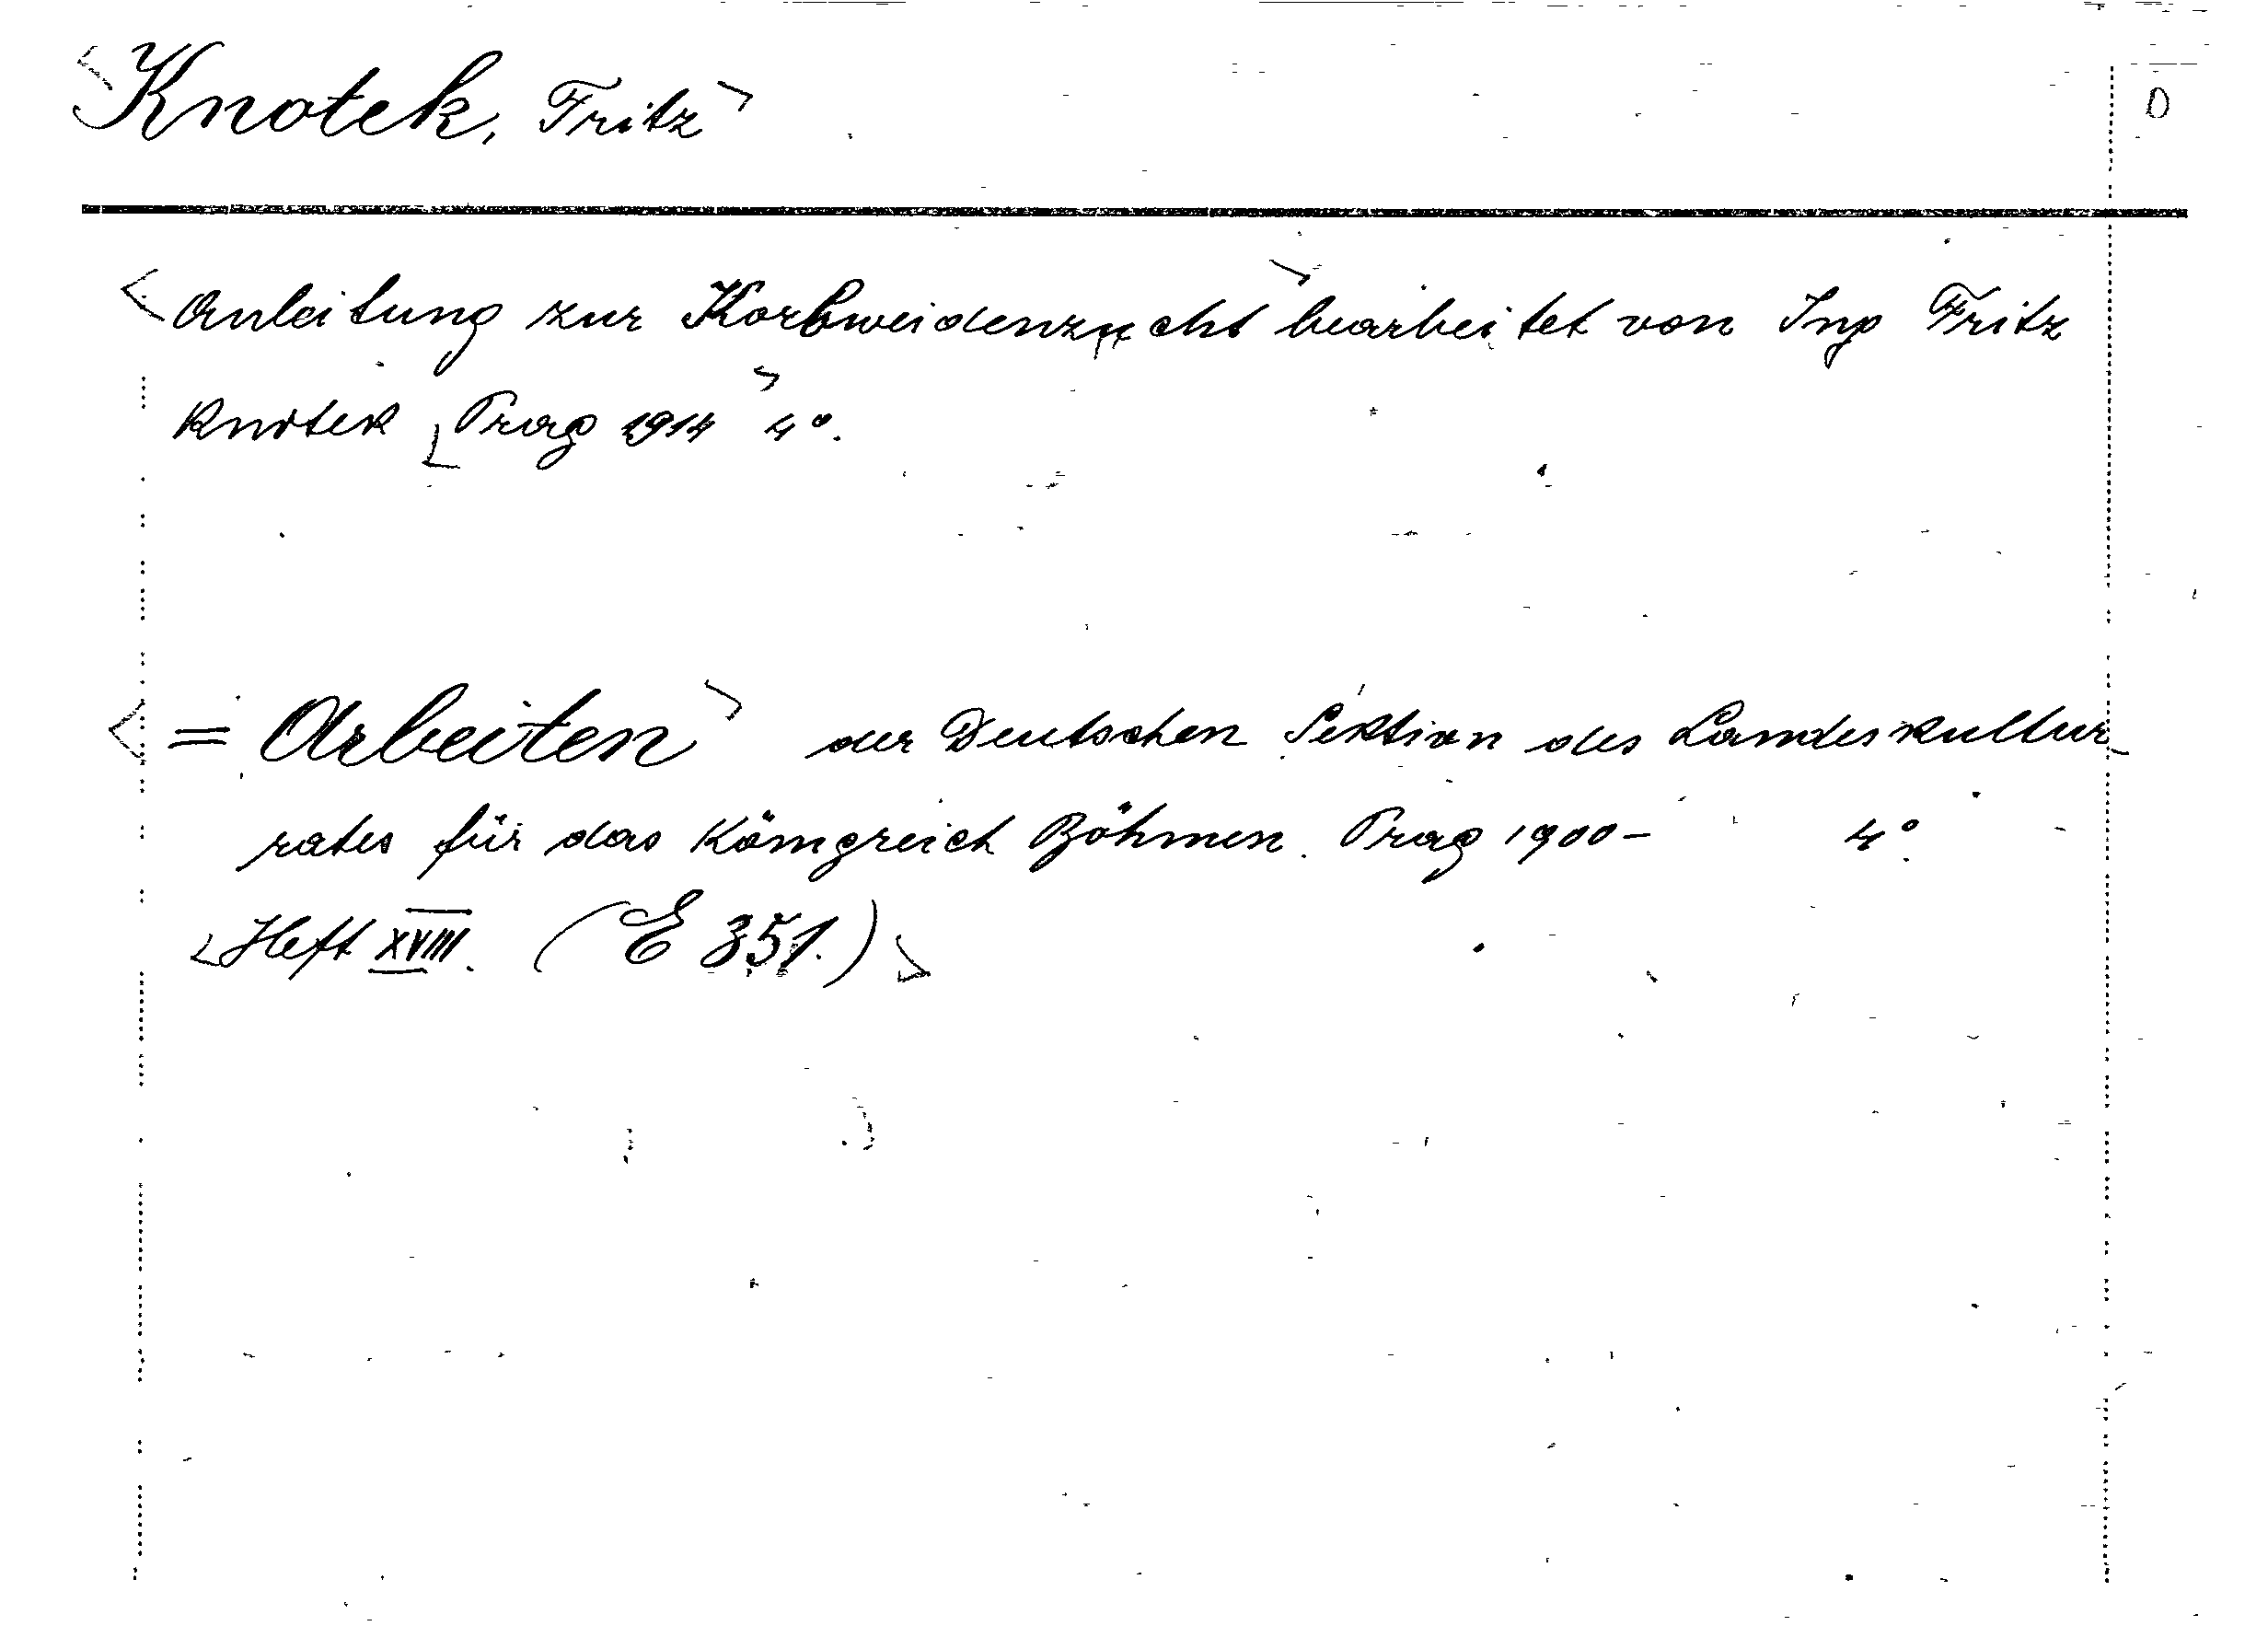 <Knotek, Fritz> D
<Anleitung zur Korbweidenzucht> bearbeitet von Ing Fritz
Knotek <Prag 1914> 4°.
<= Arbeiten> der Deutschen Sektion des Landeskultur-
rates für das Königreich Böhmen. Prag 1900- 4°.
<Heft XVIII. (E 351.)>